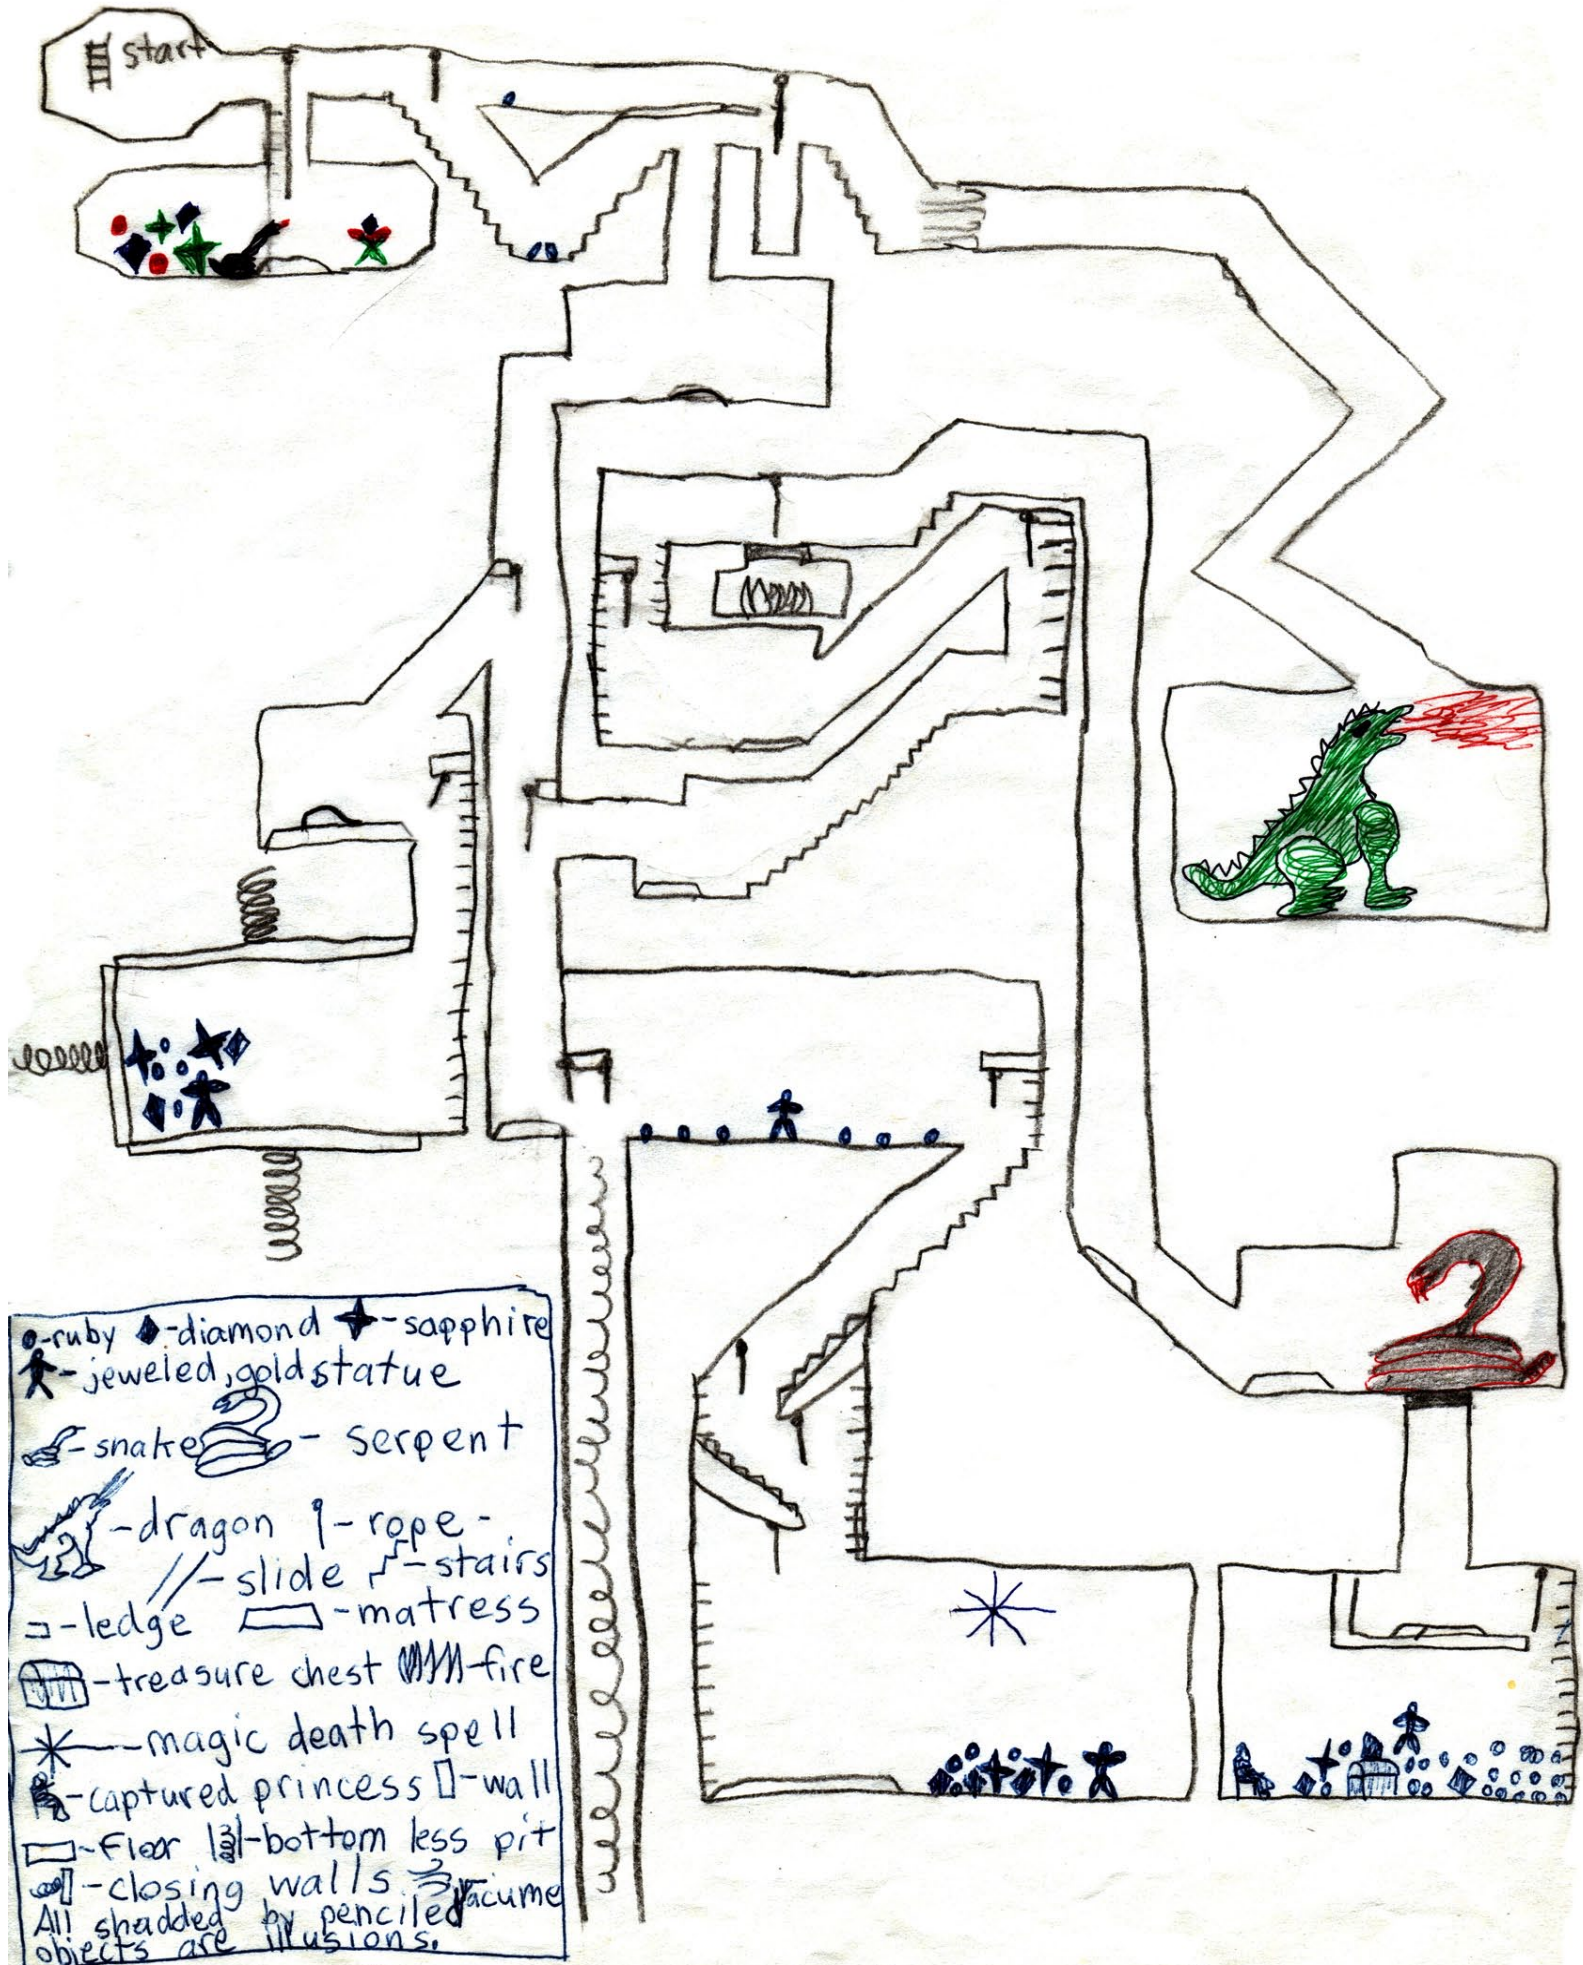 start
-ruby -diamond -sapphire
-jeweled,gold statue
-snake - serpent
-dragon -rope-
-slide -stairs
-ledge -matress
-treasure chest -fire
-magic death spell
-captured princess -wall
-Floor -bottom less pit
-closing walls -Vacume
All shadded by penciled
objects are illusions.